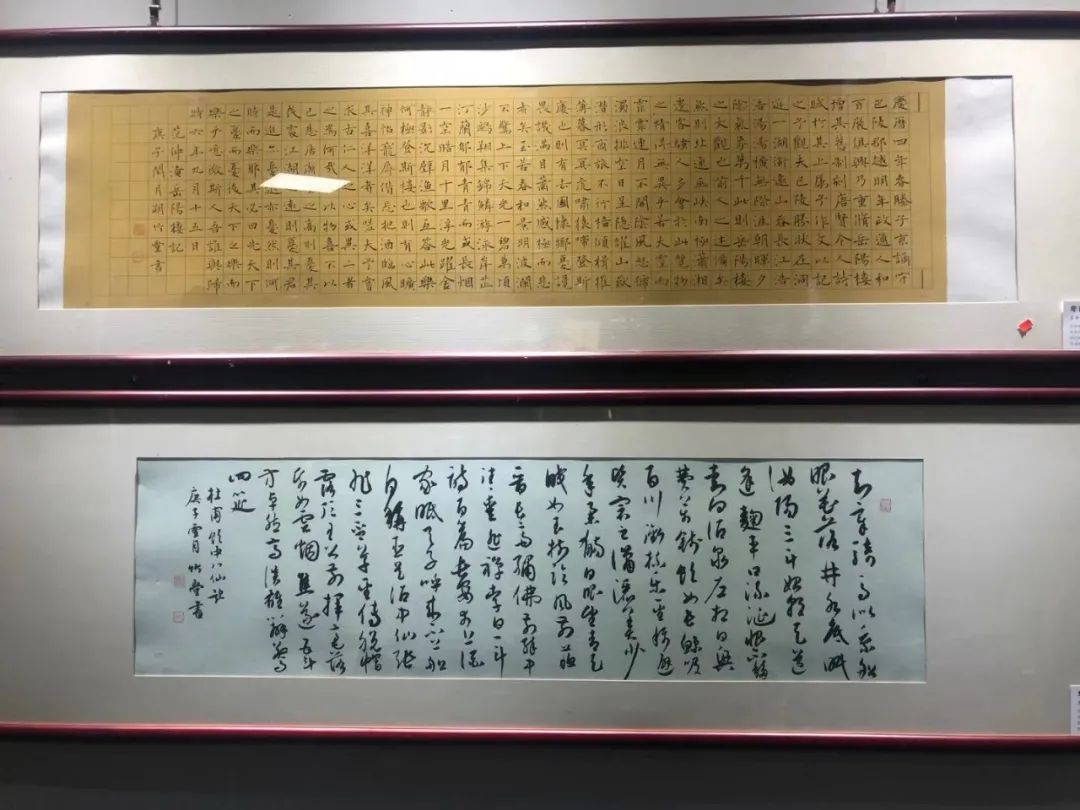 慶曆四年春滕子京謫守
巴陵郡越明年政通人和
百廢俱興乃重脩岳陽樓
增其舊制刻唐賢今人詩
賦於其上屬予作文以記
之予觀夫巴陵勝狀在洞
庭一湖銜遠山吞長江浩
浩湯湯橫無際涯朝暉夕
陰氣象萬千此則岳陽樓
之大觀也前人之述備矣
然則北通巫峽南極瀟湘
遷客騷人多會於此覽物
之情得無異乎若夫霪雨
霏霏連月不開陰風怒號
濁浪排空日星隱耀山嶽
潛形商旅不行檣傾楫摧
薄暮冥冥虎嘯猿啼登斯
樓也則有去國懷鄉憂讒
畏譏滿目蕭然感極而悲
者矣至若春和景明波瀾
不驚上下天光一碧萬頃
沙鷗翔集錦鱗游泳岸芷
汀蘭郁郁青青而或長烟
一空皓月千里浮光躍金
靜影沉璧漁歌互答此樂
何極登斯樓也則有心曠
神怡寵辱偕忘把酒臨風
其喜洋洋者矣嗟夫予嘗
求古仁人之心或異二者
之為何哉不以物喜不以
己悲居廟堂之高則憂其
民處江湖之遠則憂其君
是進亦憂退亦憂然則何
時而樂耶其必曰先天下
之憂而憂後天下之樂而
樂乎噫微斯人吾誰與歸
時六年九月十五日
范仲淹岳陽樓記
庚子閏月朔竹堂書
知章騎馬似乘船
眼花落井水底眠
汝陽三斗始朝天道
逢麴車口流涎恨不移
封向酒泉左相日興
費萬錢飲如長鯨吸
百川銜杯樂聖稱避
賢宗之瀟灑美少
年舉觴白眼望青天
皎如玉樹臨風前蘇
晉長齋繡佛前醉中
往往愛逃禪李白一斗
詩百篇長安市上酒
家眠天子呼來不上船
自稱臣是酒中仙張
旭三杯草聖傳脫帽
露頂王公前揮毫落
紙如雲煙焦遂五斗
方卓然高談雄辯驚
四筵
杜甫飲中八仙歌
庚子雪月竹堂書